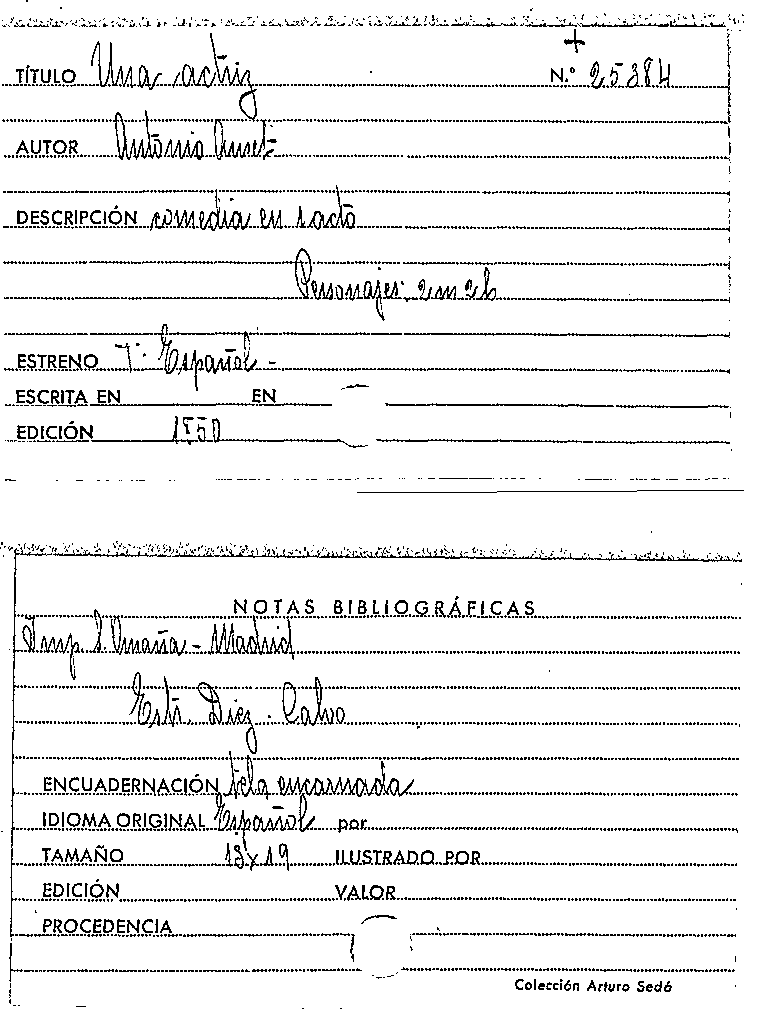 TÍTULO Una actriz N.º 25384
AUTOR Antonio Auset
DESCRIPCIÓN comedia en 1 acto
Personajes: 2m 2h
ESTRENO T. Español -
ESCRITA EN EN
EDICIÓN 1850
NOTAS BIBLIOGRÁFICAS
Imp. S. Omaña - Madrid
Estr. Diez. Calvo
ENCUADERNACIÓN tela encarnada
IDIOMA ORIGINAL Español por
TAMAÑO 13x19 ILUSTRADO POR
EDICIÓN VALOR
PROCEDENCIA
Colección Arturo Sedó